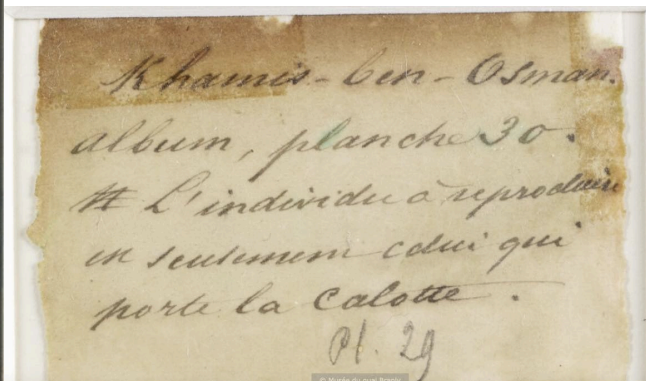 Khamis-ben-Osman.
album, planche 30.
# L'individu à reproduire
est seulement celui qui
porte la Calotte.
Pl. 29
© Musée du quai Branly